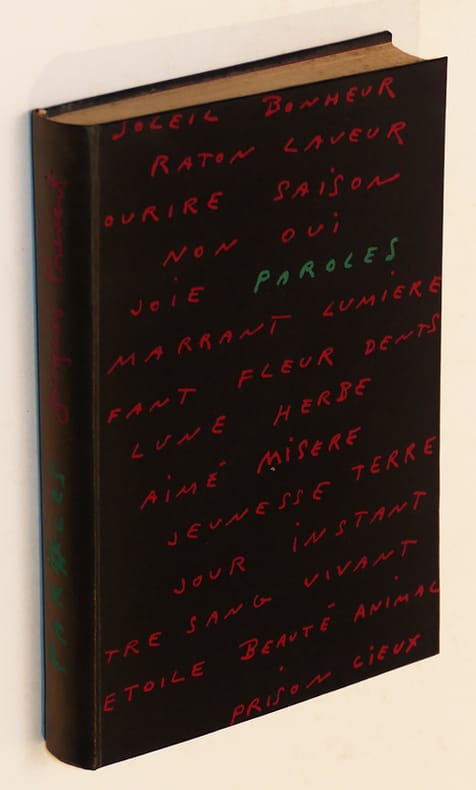 SOLEIL BONHEUR
RATON LAVEUR
OURIRE SAISON
NON OUI
JOIE PAROLES
MARRANT LUMIERE
FANT FLEUR DENTS
LUNE HERBE
AIMÉ MISERE
JEUNESSE TERRE
JOUR INSTANT
TRE SANG VIVANT
ETOILE BEAUTÉ ANIMAL
PRISON CIEUX
PAROLES Jacques Prévert